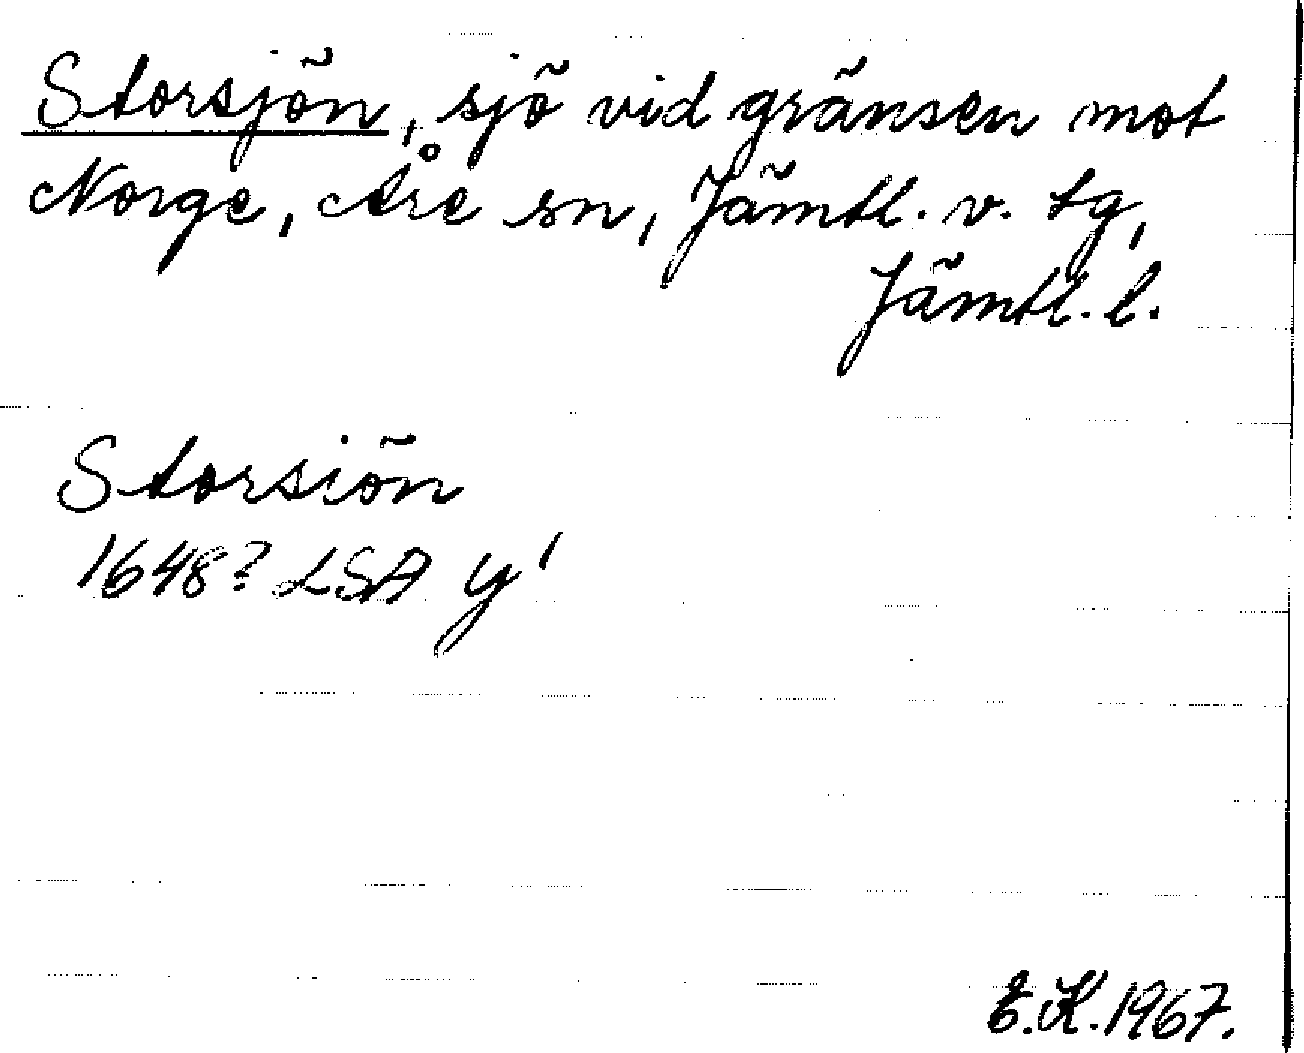 Storsjön, sjö vid gränsen mot
Norge, Åre sn, Jämtl. v. tg,
Jämtl. l.
Storsiön
1648? LSA y¹
E.K. 1967.